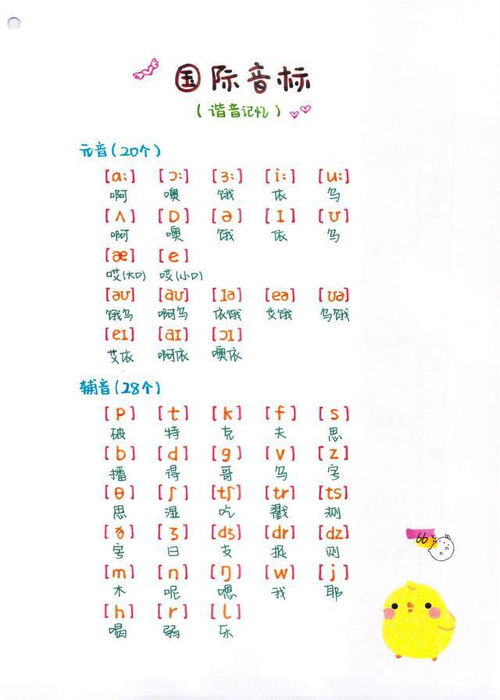 国际音标
(谐音记忆)
元音(20个)
[ɑ:] [ɔ:] [ɜ:] [i:] [u:]
啊 噢 饿 依 乌
[ʌ] [ɒ] [ə] [ɪ] [ʊ]
啊 噢 饿 依 乌
[æ] [e]
哎(大口) 哎(小口)
[əʊ] [aʊ] [ɪə] [eə] [ʊə]
饿乌 啊乌 依饿 艾饿 乌饿
[eɪ] [aɪ] [ɔɪ]
艾依 啊依 噢依
辅音(28个)
[p] [t] [k] [f] [s]
破 特 克 夫 思
[b] [d] [g] [v] [z]
播 得 哥 乌 字
[θ] [ʃ] [tʃ] [tr] [ts]
思 湿 吃 戳 测
[ð] [ʒ] [dʒ] [dr] [dz]
字 日 支 捉 则
[m] [n] [ŋ] [w] [j]
木 呢 嗯 我 耶
[h] [r] [l]
喝 弱 乐
66